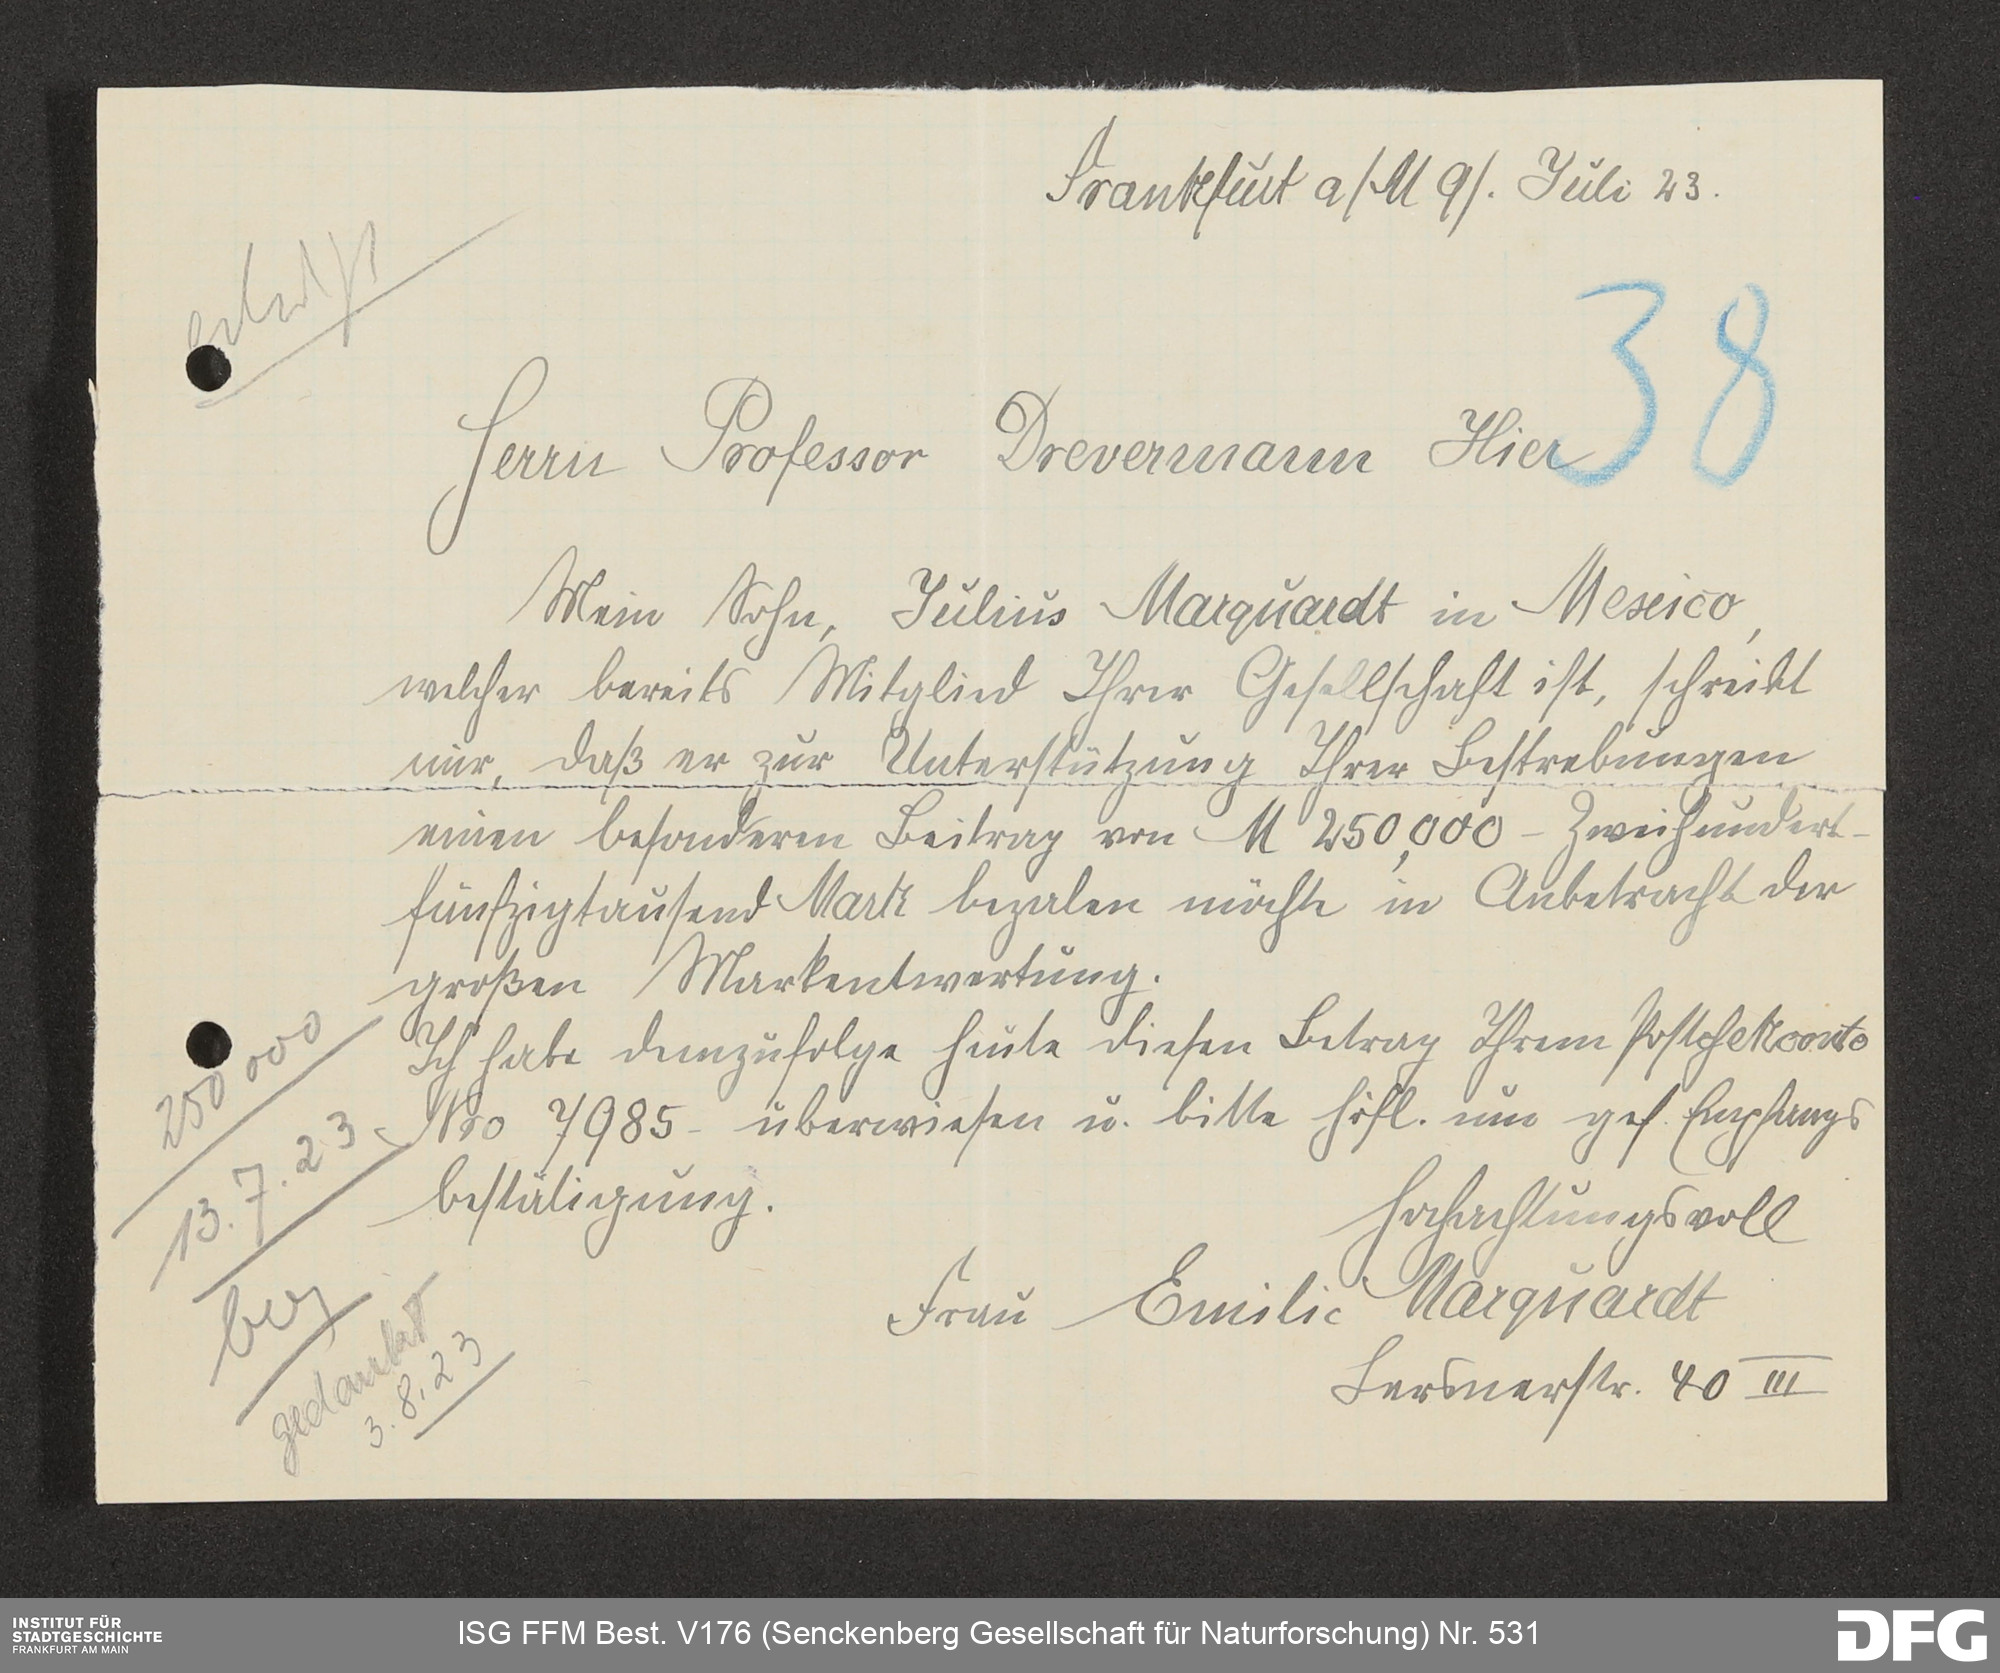 Frankfurt a/M 9/. Juli 23.
38
Herrn Professor Drevermann Hier
Mein Sohn, Julius Marquardt in Mexico,
welcher bereits Mitglied Ihrer Gesellschaft ist, schreibt
mir, daß er zur Unterstützung Ihrer Bestrebungen
einen besonderen Beitrag von M 250,000 – Zweihundert-
fünfzigtausend Mark bezalen möchte in Anbetracht der
großen Markentwertung.
Ich habe demzufolge heute diesen Betrag Ihrem Postchekconto
Nro 7985 – überwiesen u. bitte höfl. um gef. Empfangs
bestätigung.
Hochachtungsvoll
Frau Emilie Marquardt
Lersnerstr. 40 III
250 000
13.7.23
bez
gedankt
3.8.23
INSTITUT FÜR
STADTGESCHICHTE
FRANKFURT AM MAIN
ISG FFM Best. V176 (Senckenberg Gesellschaft für Naturforschung) Nr. 531
DFG